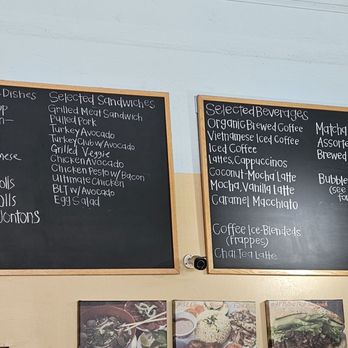 Dishes
Selected Sandwiches
Grilled Meat Sandwich
Pulled Pork
Turkey Avocado
Turkey Club w/ Avocado
Grilled Veggie
Chicken Avocado
Chicken Pesto w/ Bacon
Ultimate Chicken
BLT w/ Avocado
Egg Salad
Selected Beverages
Organic Brewed Coffee
Vietnamese Iced Coffee
Iced Coffee
Lattes, Cappuccinos
Coconut-Mocha Latte
Mocha, Vanilla Latte
Caramel Macchiato
Coffee Ice-Blendeds
(frappes)
Chai Tea Latte
Matcha
Brewed
(see